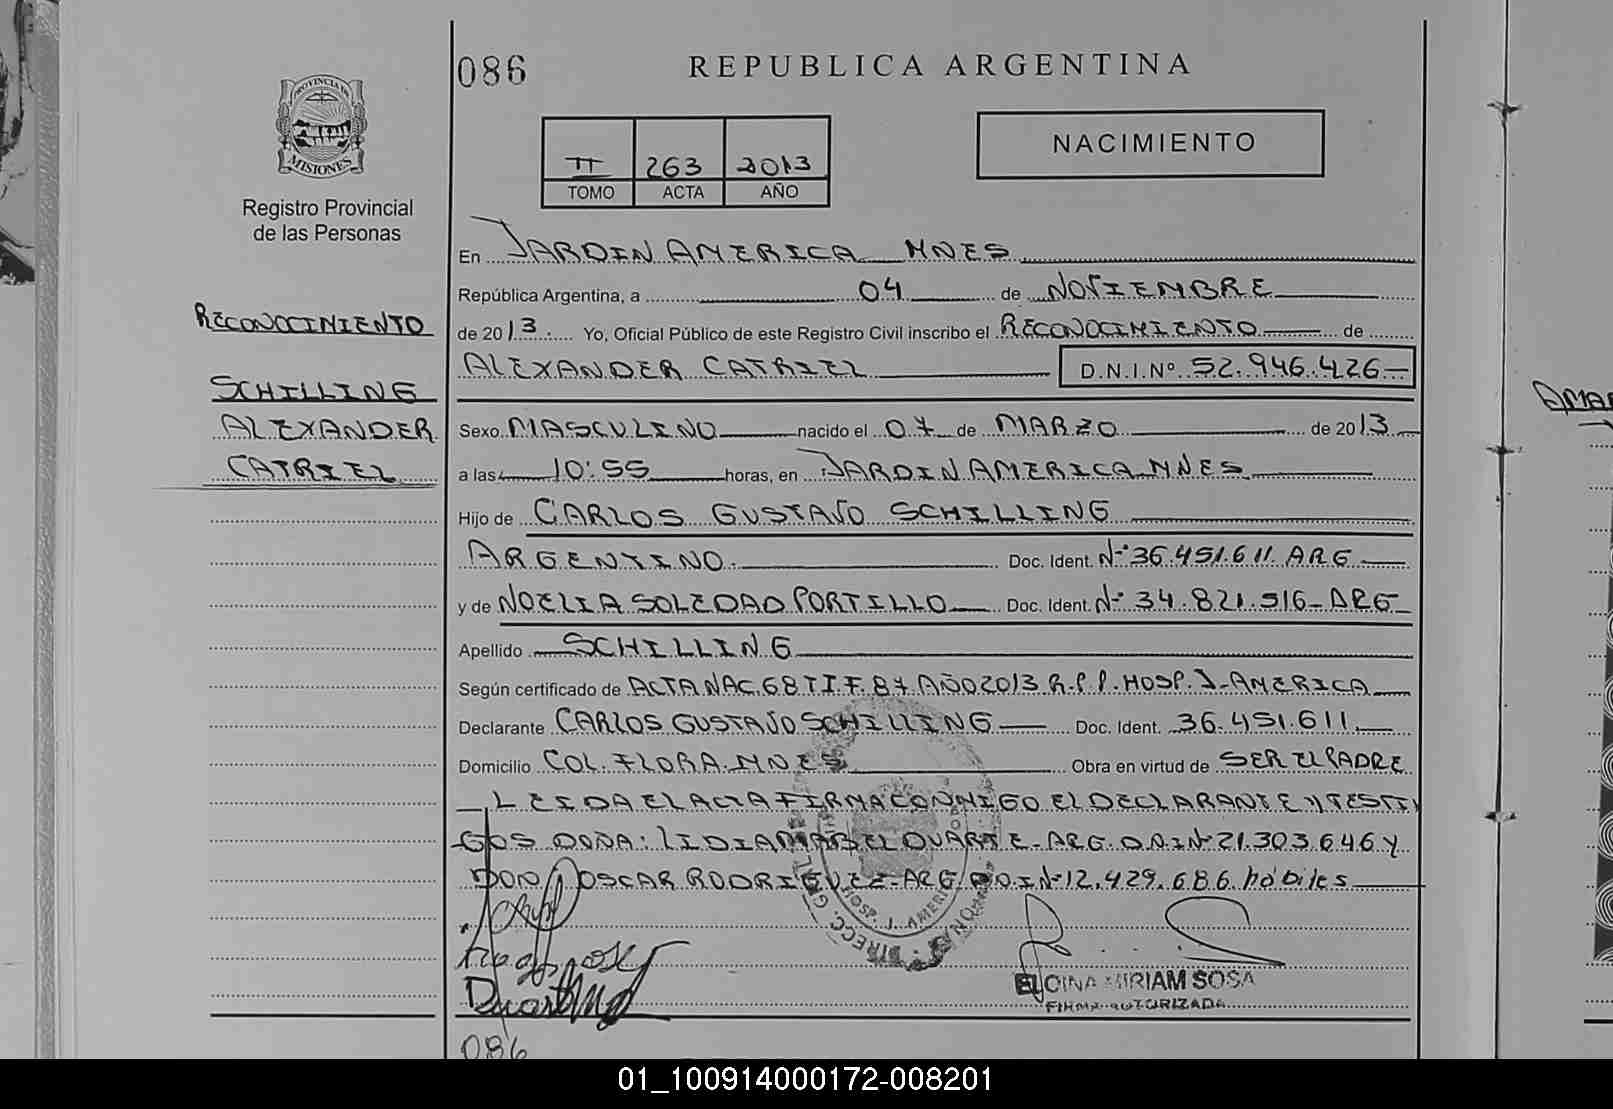 086
REPUBLICA ARGENTINA
PROVINCIA DE
MISIONES
Registro Provincial
de las Personas
II 263 2013
TOMO ACTA AÑO
NACIMIENTO
RECONOCIMIENTO
SCHILLING
ALEXANDER
CATRIEL
En JARDIN AMERICA MNES
República Argentina, a 04 de NOVIEMBRE
de 2013. Yo, Oficial Público de este Registro Civil inscribo el RECONOCIMIENTO de
ALEXANDER CATRIEL D.N.I.Nº 52.946.426
Sexo MASCULINO nacido el 07 de MARZO de 2013
a las 10:55 horas, en JARDIN AMERICA MNES
Hijo de CARLOS GUSTAVO SCHILLING
ARGENTINO. Doc. Ident. Nº 36.451.611 ARG
y de NOELIA SOLEDAD PORTILLO Doc. Ident. Nº 34.821.516-ARG
Apellido SCHILLING
Según certificado de ACTA NAC. 68 T I F. 87 AÑO 2013 R.P.P. HOSP. J-AMERICA
Declarante CARLOS GUSTAVO SCHILLING Doc. Ident. 36.451.611
Domicilio COL. FLORA. MNES Obra en virtud de SER EL PADRE
LEIDA EL ACTA FIRMA CONMIGO EL DECLARANTE Y TESTI
GOS DOÑA: LIDIA MABEL DUARTE-ARG. D.N.I Nº 21.303.646 Y
DON OSCAR RODRIGUEZ-ARG. D.N.I Nº 12.429.686. habiles
HOSP. J. AMERI
DIRECC. GRAL
Duarte
MIRIAM SOSA
FIRMA AUTORIZADA
086
01_100914000172-008201